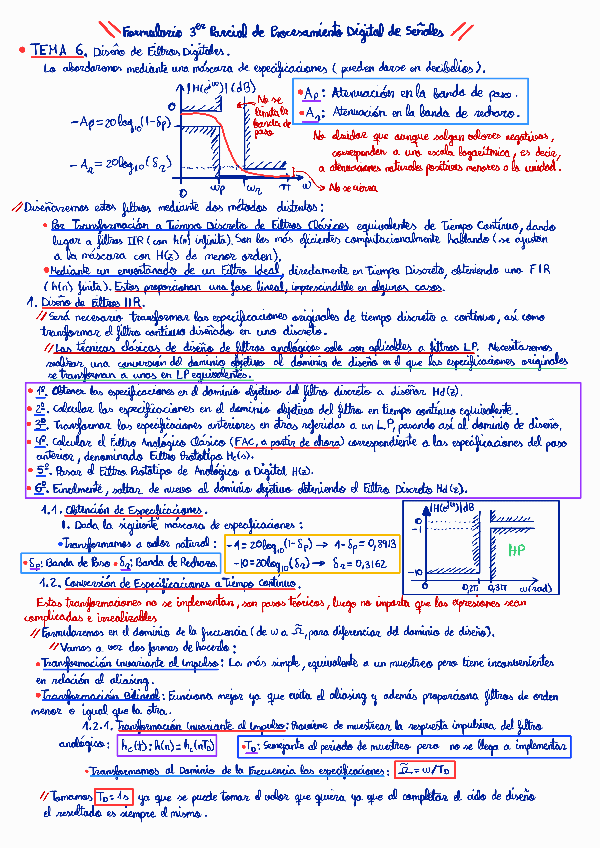 Formulario 3er Parcial de Procesamiento Digital de Señales
• TEMA 6. Diseño de Filtros Digitales.
Lo abordaremos mediante una máscara de especificaciones (pueden darse en decibelios).
|H(e^jω)|(dB)
0
-Ap = 20log10(1-δp)
-As = 20log10(δs)
0 ωp ωs π ω
No se limita la banda de paso
→ No se cierra
• Ap: Atenuación en la banda de paso.
• As: Atenuación en la banda de rechazo.
No olvidar que aunque salgan valores negativos,
corresponden a una escala logarítmica, es decir,
a atenuaciones naturales positivas menores a la unidad.
// Diseñaremos estos filtros mediante dos métodos distintos:
• Por Transformación a Tiempo Discreto de Filtros Clásicos equivalentes de Tiempo Continuo, dando
lugar a filtros IIR (con h(n) infinita). Son los más eficientes computacionalmente hablando (se ajustan
a la máscara con H(z) de menor orden).
• Mediante un enventanado de un Filtro Ideal, directamente en Tiempo Discreto, obteniendo uno FIR
(h(n) finita). Estos proporcionan una fase lineal, imprescindible en algunos casos.
1. Diseño de Filtros IIR.
// Será necesario transformar las especificaciones originales de tiempo discreto a continuo, así como
transformar el filtro continuo diseñado en uno discreto.
// Las técnicas clásicas de diseño de filtros analógicos solo son aplicables a filtros LP. Necesitaremos
realizar una conversión del dominio objetivo al dominio de diseño en el que las especificaciones originales
se transforman a unas en LP equivalentes.
• 1º. Obtener las especificaciones en el dominio objetivo del filtro discreto a diseñar Hd(z).
• 2º. Calcular las especificaciones en el dominio objetivo del filtro en tiempo continuo equivalente.
• 3º. Transformar las especificaciones anteriores en otras referidas a un LP, pasando así al dominio de diseño.
• 4º. Calcular el Filtro Analógico Clásico (FAC, a partir de ahora) correspondiente a las especificaciones del paso
anterior, denominado Filtro Prototipo Hc(s).
• 5º. Pasar el Filtro Prototipo de Analógico a Digital H(z).
• 6º. Finalmente, saltar de nuevo al dominio objetivo obteniendo el Filtro Discreto Hd(z).
1.1. Obtención de Especificaciones.
1. Dada la siguiente máscara de especificaciones:
• Transformamos a valor natural:
-1 = 20log10(1-δp) → 1-δp = 0,8913
-10 = 20log10(δs) → δs = 0,3162
• δp: Banda de Paso • δs: Banda de Rechazo
|H(e^jω)|dB
0
-1
-10
HP
0 0,2π 0,3π ω(rad)
1.2. Conversión de Especificaciones a Tiempo Continuo.
Estas transformaciones no se implementan, son pasos teóricos, luego no importa que las expresiones sean
complicadas e irrealizables
// Formularemos en el dominio de la frecuencia (de ω a Ω̃, para diferenciar del dominio de diseño).
// Vamos a ver dos formas de hacerlo:
• Transformación invariante al impulso: La más simple, equivalente a un muestreo pero tiene inconvenientes
en relación al aliasing.
• Transformación Bilineal: Funciona mejor ya que evita el aliasing y además proporciona filtros de orden
menor o igual que la otra.
1.2.1. Transformación Invariante al Impulso: proviene de muestrear la respuesta impulsiva del filtro
analógico: hc(t): h(n) = hc(nTD)
• TD: Semejante al periodo de muestreo pero no se llega a implementar
• Transformamos al Dominio de la Frecuencia las especificaciones: Ω̃ = ω/TD
// Tomamos TD = 1s ya que se puede tomar el valor que quiera ya que al completar el ciclo de diseño
el resultado es siempre el mismo.